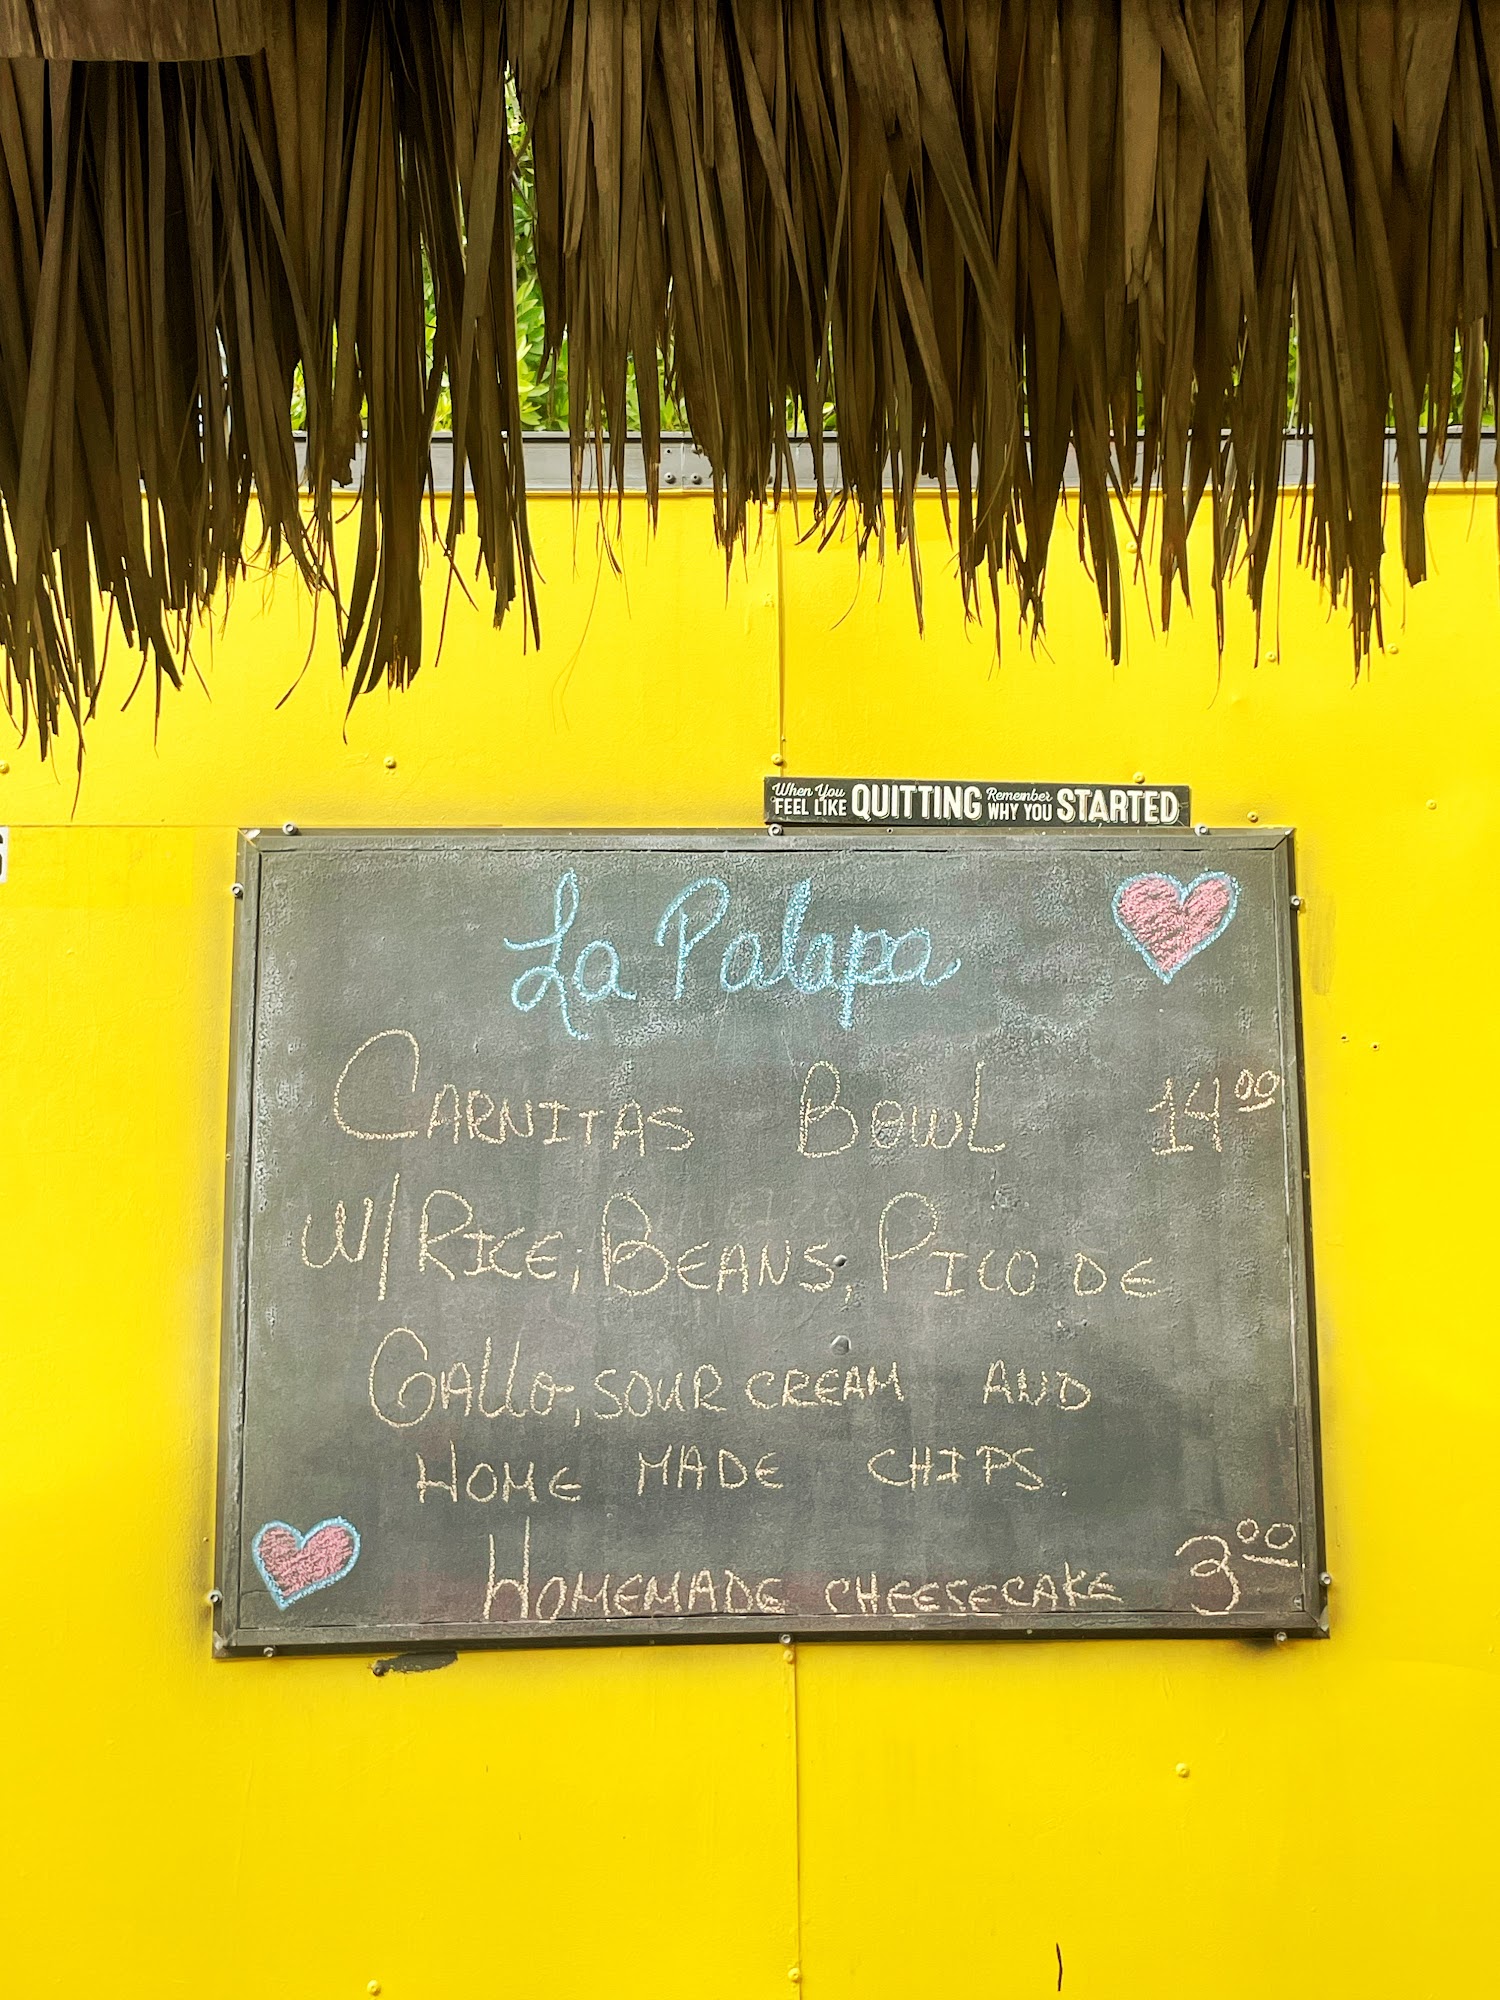 When You FEEL LIKE QUITTING Remember WHY YOU STARTED
La Palapa
CARNITAS BOWL 14.00
W/ RICE; BEANS; PICO DE
GALLO, SOUR CREAM AND
HOME MADE CHIPS.
HOMEMADE CHEESECAKE 3.00